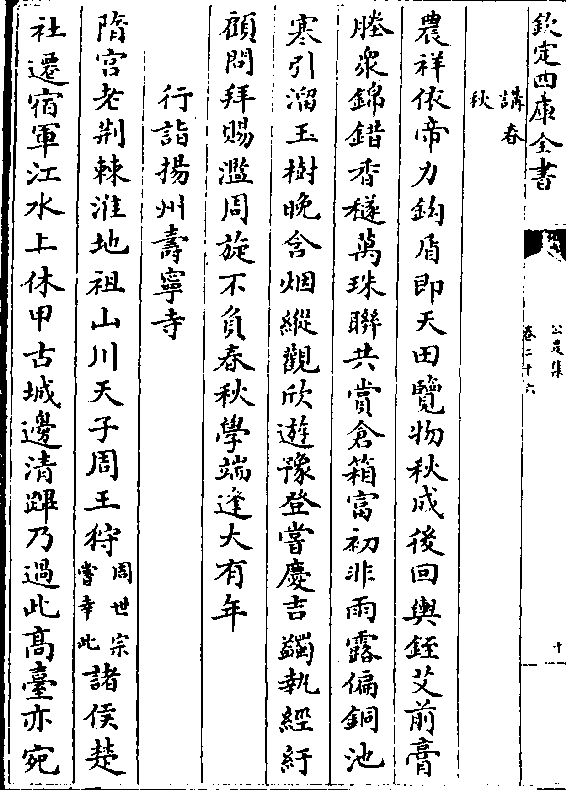 欽定四庫全書
公是集
卷二十六
十
講春
秋
農祥依帝力鈎盾即天田覽物秋成後回輿銍艾前膏
塍衆錦錯香穟萬珠聯共賞倉箱富初非雨露偏銅池
寒引溜玉樹晚含烟縱觀欣遊豫登嘗慶吉蠲執經紆
顧問拜賜濫周旋不負春秋學端逢大有年
行詣揚州壽寧寺
隋宫老荆棘淮地祖山川天子周王狩周世宗嘗幸此諸侯楚
社遷宿軍江水上休甲古城邊清蹕乃過此高臺亦宛